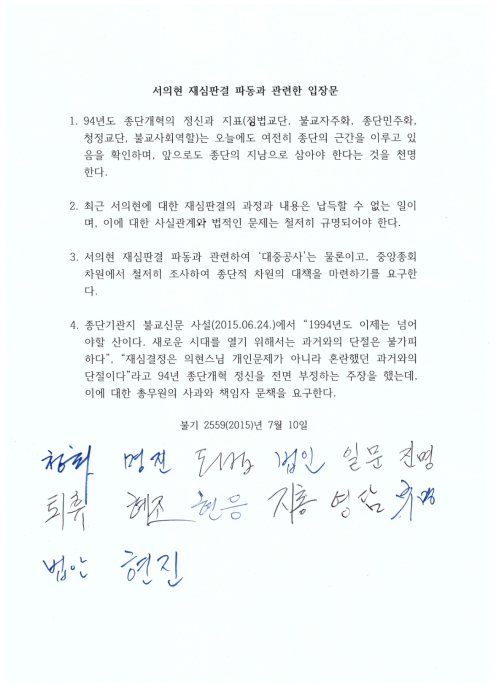 서의현 재심판결 파동과 관련한 입장문
1. 94년도 종단개혁의 정신과 지표(정법교단, 불교자주화, 종단민주화,
청정교단, 불교사회역할)는 오늘에도 여전히 종단의 근간을 이루고 있
음을 확인하며, 앞으로도 종단의 지남으로 삼아야 한다는 것을 천명
한다.
2. 최근 서의현에 대한 재심판결의 과정과 내용은 납득할 수 없는 일이
며, 이에 대한 사실관계와 법적인 문제는 철저히 규명되어야 한다.
3. 서의현 재심판결 파동과 관련하여 '대중공사'는 물론이고, 중앙종회
차원에서 철저히 조사하여 종단적 차원의 대책을 마련하기를 요구한
다.
4. 종단기관지 불교신문 사설(2015.06.24.)에서 "1994년도 이제는 넘어
야할 산이다. 새로운 시대를 열기 위해서는 과거와의 단절은 불가피
하다", "재심결정은 의현스님 개인문제가 아니라 혼란했던 과거와의
단절이다"라고 94년 종단개혁 정신을 전면 부정하는 주장을 했는데,
이에 대한 총무원의 사과와 책임자 문책을 요구한다.
불기 2559(2015)년 7월 10일
청화 명진 도법 법인 일문 진명
퇴휴 혜조 현응 지홍 영담
법안 현진